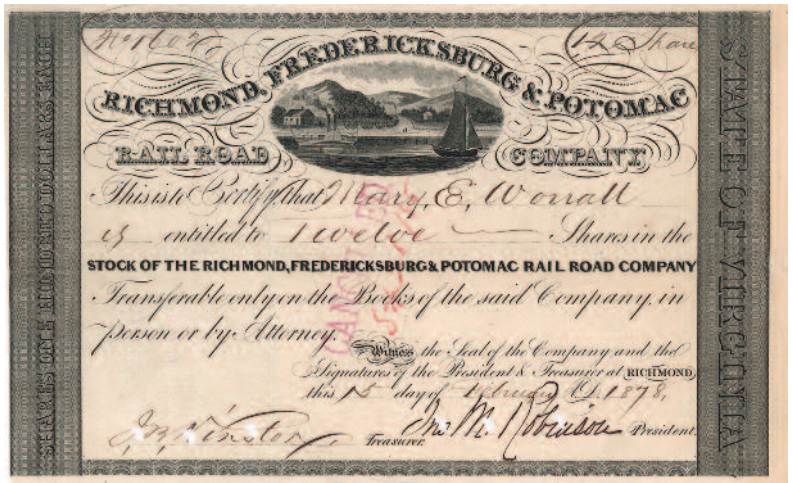 No 1602
12 Share
RICHMOND, FREDERICKSBURG & POTOMAC
RAIL ROAD COMPANY
This is to Certify that Mary, E, Worrall
is entitled to Twelve Shares in the
STOCK OF THE RICHMOND, FREDERICKSBURG & POTOMAC RAIL ROAD COMPANY
Transferable only on the Books of the said Company, in
person or by Attorney.
Witness the Seal of the Company and the
Signatures of the President & Treasurer at RICHMOND
this 15 day of February A.D. 1878,
J. B. Winston Treasurer. Jno M. Robinson President.
SHARES ONE HUNDRED DOLLARS EACH
STATE OF VIRGINIA
CANCELLED